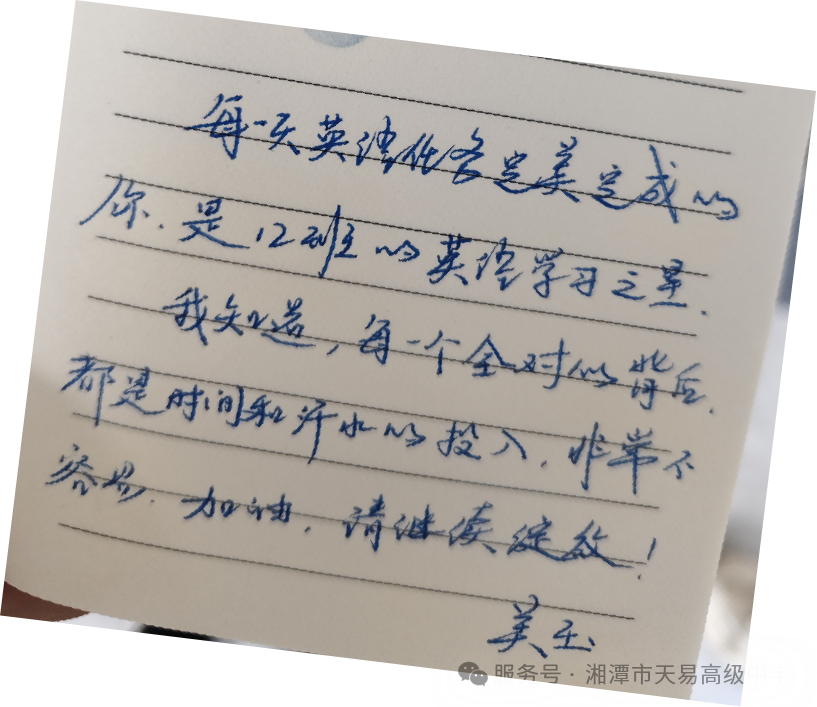 每一天英语任务完美完成的
你，是12班的英语学习之星。
我知道，每一个全对的背后，
都是时间和汗水的投入，非常不
容易。加油，请继续绽放！
美玉
服务号·湘潭市天易高级中学